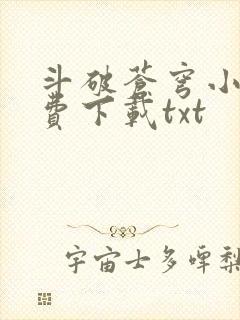 斗破蒼穹小
費下載txt
宇宙士多啤梨